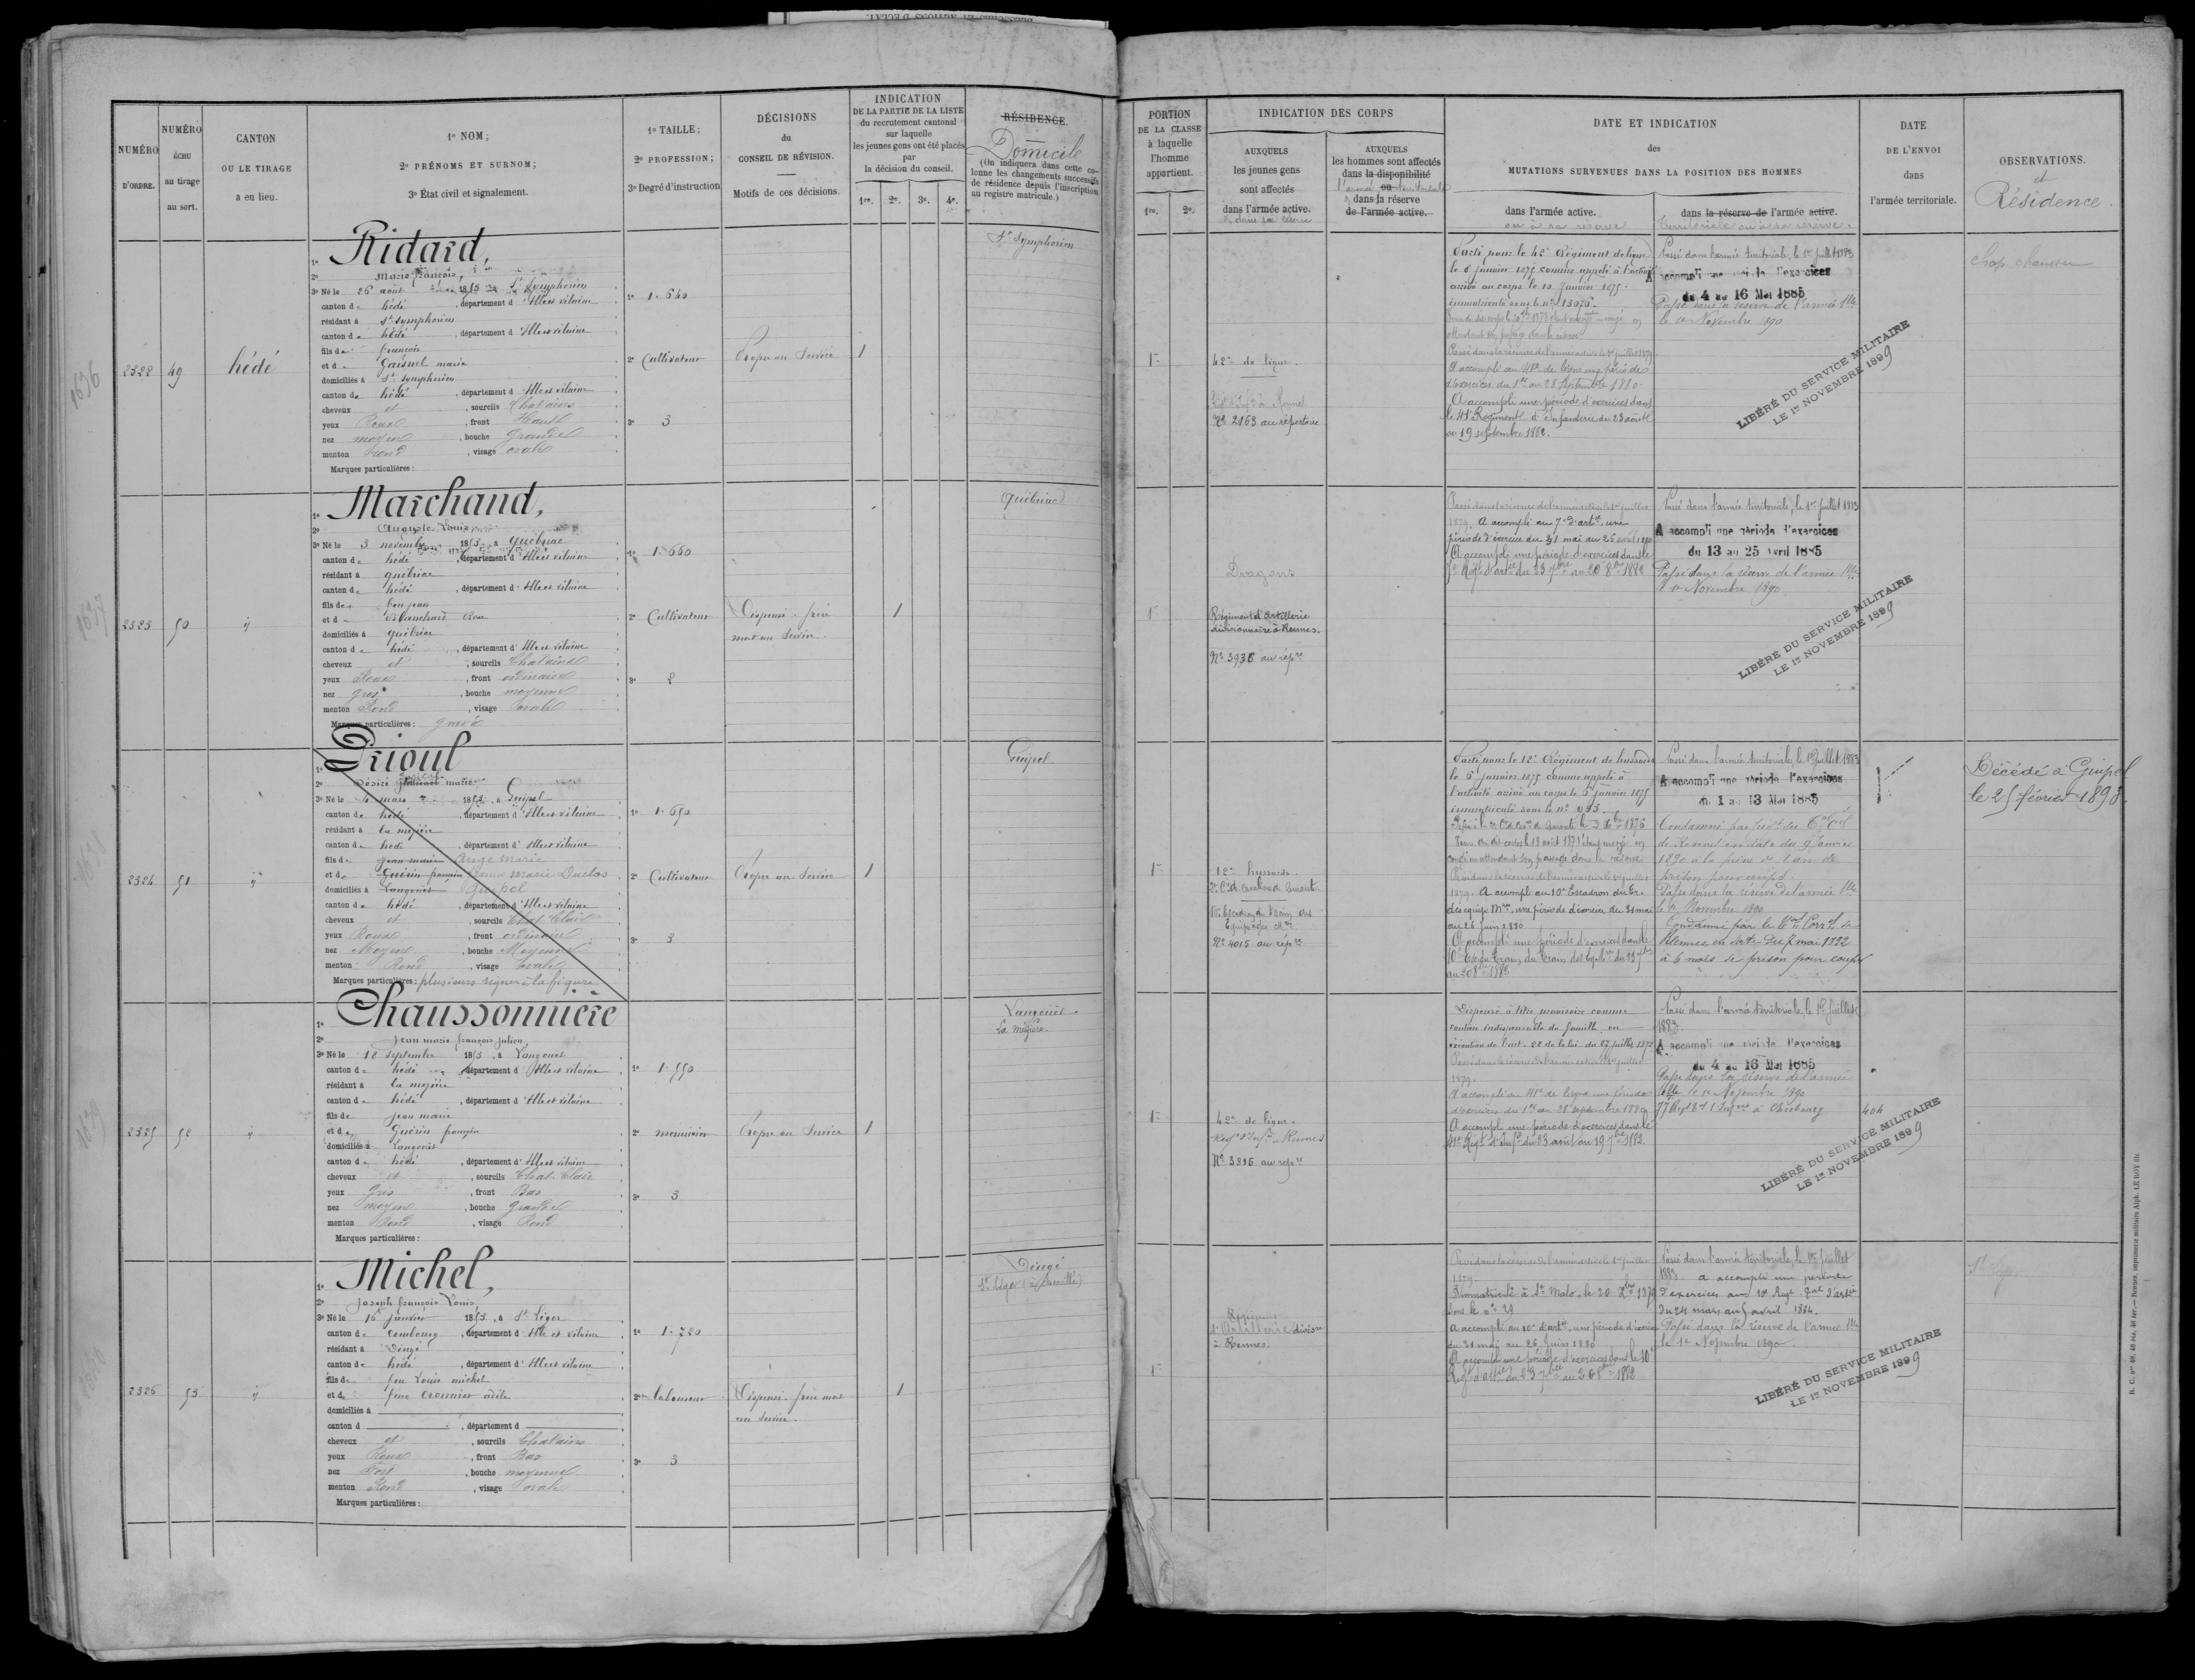 NUMÉRO D'ORDRE.
NUMÉRO ÉCHU au tirage au sort.
CANTON OU LE TIRAGE a eu lieu.
1º NOM;
2º PRÉNOMS ET SURNOM;
3º État civil et signalement.
1º TAILLE;
2º PROFESSION;
3º Degré d'instruction
DÉCISIONS du CONSEIL DE RÉVISION.
Motifs de ces décisions.
INDICATION
DE LA PARTIE DE LA LISTE
du recrutement cantonal
sur laquelle
les jeunes gens ont été placés
par
la décision du conseil.
1re. 2e. 3e. 4e.
RÉSIDENCE.
Domicile
(On indiquera dans cette co-
lonne les changements successifs
de résidence depuis l'inscription
au registre matricule.)
2322
49
hédé
Ridard,
Marie françois
3º Né le 26 août 1853 à St Symphorien
canton de hédé, département d'Ille et vilaine
résidant à St Symphorien
canton de hédé, département d'Ille et vilaine
fils de françois
et de Gaisnel marie
domiciliés à St Symphorien
canton de hédé, département d'Ille et vilaine
cheveux et, sourcils Chatains
yeux Roux, front Haut
nez moyen, bouche Grande
menton rond, visage ovale
Marques particulières:
1º 1.640
2º Cultivateur
3º 3
Propre au Service
1
St Symphorien
2323
50
ij
Marchand,
Auguste Louis
3º Né le 3 novembre 1853, à québriac
canton de hédé, département d'Ille et vilaine
résidant à québriac
canton de hédé, département d'Ille et vilaine
fils de feu jean
et de Blanchard
domiciliés à québriac
canton de hédé, département d'Ille et vilaine
cheveux et, sourcils Chatains
yeux Roux, front ordinaire
nez gros, bouche moyenne
menton Rond, visage ovale
Marques particulières: gravé
1º 1.660
2º Cultivateur
3º 2
Dispensé. frère
mort au Service.
1
Québriac
2324
51
ij
Prioul
Désiré marie
3º Né le 4 mars 1853, à Guipel
canton de hédé, département d'Ille et vilaine
résidant à La mézière
canton de hédé, département d'Ille et vilaine
fils de jean marie Ange Marie
et de Guérin françoise Marie Duclos
domiciliés à Langouët Guipel
canton de hédé, département d'Ille et vilaine
cheveux et, sourcils Chat. Clair
yeux Roux, front ordinaire
nez Moyen, bouche Moyenne
menton Rond, visage ovale
Marques particulières: plusieurs signes à la figure
1º 1.650
2º Cultivateur
3º 3
Propre au Service
1
Guipel
2325
52
ij
Chaussonnière
Jean marie françois julien
3º Né le 18 septembre 1853, à Langouët
canton de hédé, département d'Ille et vilaine
résidant à La mézière
canton de hédé, département d'Ille et vilaine
fils de jean marie
et de Guérin françoise
domiciliés à Langouët
canton de hédé, département d'Ille et vilaine
cheveux et, sourcils Chat. Clair
yeux Gris, front Bas
nez moyen, bouche grande
menton Rond, visage Rond
Marques particulières:
1º 1.550
2º menuisier
3º 3
Propre au Service
1
Langouët
La mézière
2326
53
ij
Michel,
Joseph françois Louis
3º Né le 16 janvier 1853, à St Léger
canton de Combourg, département d'Ille et vilaine
résidant à Dingé
canton de hédé, département d'Ille et vilaine
fils de feu Louis michel
et de feue adèle
domiciliés à
canton d , département d
cheveux et, sourcils Chatains
yeux Roux, front Bas
nez Fort, bouche moyenne
menton Rond, visage ovale
Marques particulières:
1º 1.720
2º laboureur
3º 3
Dispensé. frère mort
au Service.
1
Dingé
1636
1637
1638
1639
PORTION
DE LA CLASSE
à laquelle
l'homme
appartient.
1re. 2e.
INDICATION DES CORPS
AUXQUELS
les jeunes gens
sont affectés
dans l'armée active.
AUXQUELS
les hommes sont affectés
dans la disponibilité
ou
l'armée territoriale
dans la réserve
de l'armée active.
DATE ET INDICATION
des
MUTATIONS SURVENUES DANS LA POSITION DES HOMMES
dans l'armée active.
ou à sa réserve
dans la réserve de l'armée active.
Territoriale ou à sa réserve.
DATE
DE L'ENVOI
dans
l'armée territoriale.
OBSERVATIONS.
et
Résidence.
1re
42e de ligne.
No 2163 au répertoire
Parti pour le 42e Régiment de ligne
le 6 janvier 1875 comme appelé à l'activité
arrivé au corps le 10 janvier 1875.
immatriculé sous le no 13076.
Passé dans la réserve de l'armée active le 1er juillet 1879
A accompli au 41e de ligne une période
d'exercices du 1er au 28 Septembre 1880.
A accompli une période d'exercices dans
le 41e Régiment d'Infanterie du 23 août
au 19 septembre 1882.
Passé dans l'armée territoriale, le 1er Juillet 1883
A accompli une période d'exercices
du 4 au 16 Mai 1885
Passé dans la réserve de l'armée Tlle
le 1er Novembre 1890
LIBÉRÉ DU SERVICE MILITAIRE
LE 1er NOVEMBRE 1899
1re
Dragons
Régiment d'Artillerie
divisionnaire à Rennes.
No 3936 au répre
Passé dans la réserve de l'armée active le 1er juillet
1879. A accompli au 7e d'artie une
A accompli une période d'exercices dans le
7e Régt d'artie du 23 7bre au 20 8bre 1882
Passé dans l'armée territoriale, le 1er Juillet 1883
A accompli une période d'exercices
du 13 au 25 Avril 1885
Passé dans la réserve de l'armée Tlle
le 1er Novembre 1890
LIBÉRÉ DU SERVICE MILITAIRE
LE 1er NOVEMBRE 1899
1re
12e hussards
No 4015 au répre
Parti pour le 12e Régiment de hussards
le 6 janvier 1875 comme appelé à
l'activité arrivé au corps le 6 janvier 1875
immatriculé sous le no 933.
1879. A accompli au 10e Escadron du Tr.
des équip. Mres, une période d'exercices du 31 mai
au 26 juin 1880
A accompli une période d'exercices dans le
au 20 8bre 1882
Passé dans l'armée territoriale, le 1er Juillet 1883
A accompli une période d'exercices
du 1 au 13 Mai 1885
Condamné par jugt du Tal Cel
de Rennes en date du 9 Janvier
1890 à la peine de 1 an de
prison pour
Passé dans la réserve de l'armée Tlle
le 1er Novembre 1890
Condamné par le Tal Correl de
Rennes, en date du 7 mai 1892
à 6 mois de prison pour coups
Décédé à Guipel
le 25 février 1893.
1re
42e de ligne.
Regt d'Infie Rennes
No 3816 au répre
Dispensé à titre provisoire comme
soutien indispensable de famille, en
exécution de l'art. 22 de la loi du 27 juillet 1872
Passé dans la réserve de l'armée active le 1er juillet
1879.
A accompli au 41e de ligne une période
d'exercices du 1er au 28 septembre 1880
A accompli une période d'exercices dans le
41e Régt d'Infie du 23 août au 19 7bre 1882.
Passé dans l'armée territoriale, le 1er Juillet
1883.
A accompli une période d'exercices
du 4 au 16 Mai 1885
Passé dans la réserve de l'armée
Tlle le 1er Novembre 1890
77 Regt à Cherbourg
404
LIBÉRÉ DU SERVICE MILITAIRE
LE 1er NOVEMBRE 1899
1re
Régiment
d'Artillerie divisre
à Rennes.
Passé dans la réserve de l'armée active le 1er juillet
1879.
Immatriculé à St Malo, le 20 1879
sous le no 29
A accompli au 10e d'artie, une période d'exercices
du 31 mai au 26 juin 1880
A accompli une période d'exercices dans le 10e
Régt d'artie du 23 7bre au 20 8bre 1882
Passé dans l'armée territoriale, le 1er Juillet
1883. A accompli une période
d'exercices au 10e Regt d'artie
du 24 mars au 5 avril 1884.
Passé dans la réserve de l'armée Tlle
le 1er Novembre 1890
LIBÉRÉ DU SERVICE MILITAIRE
LE 1er NOVEMBRE 1899
Rennes, imprimerie militaire Alph. LE ROY fils